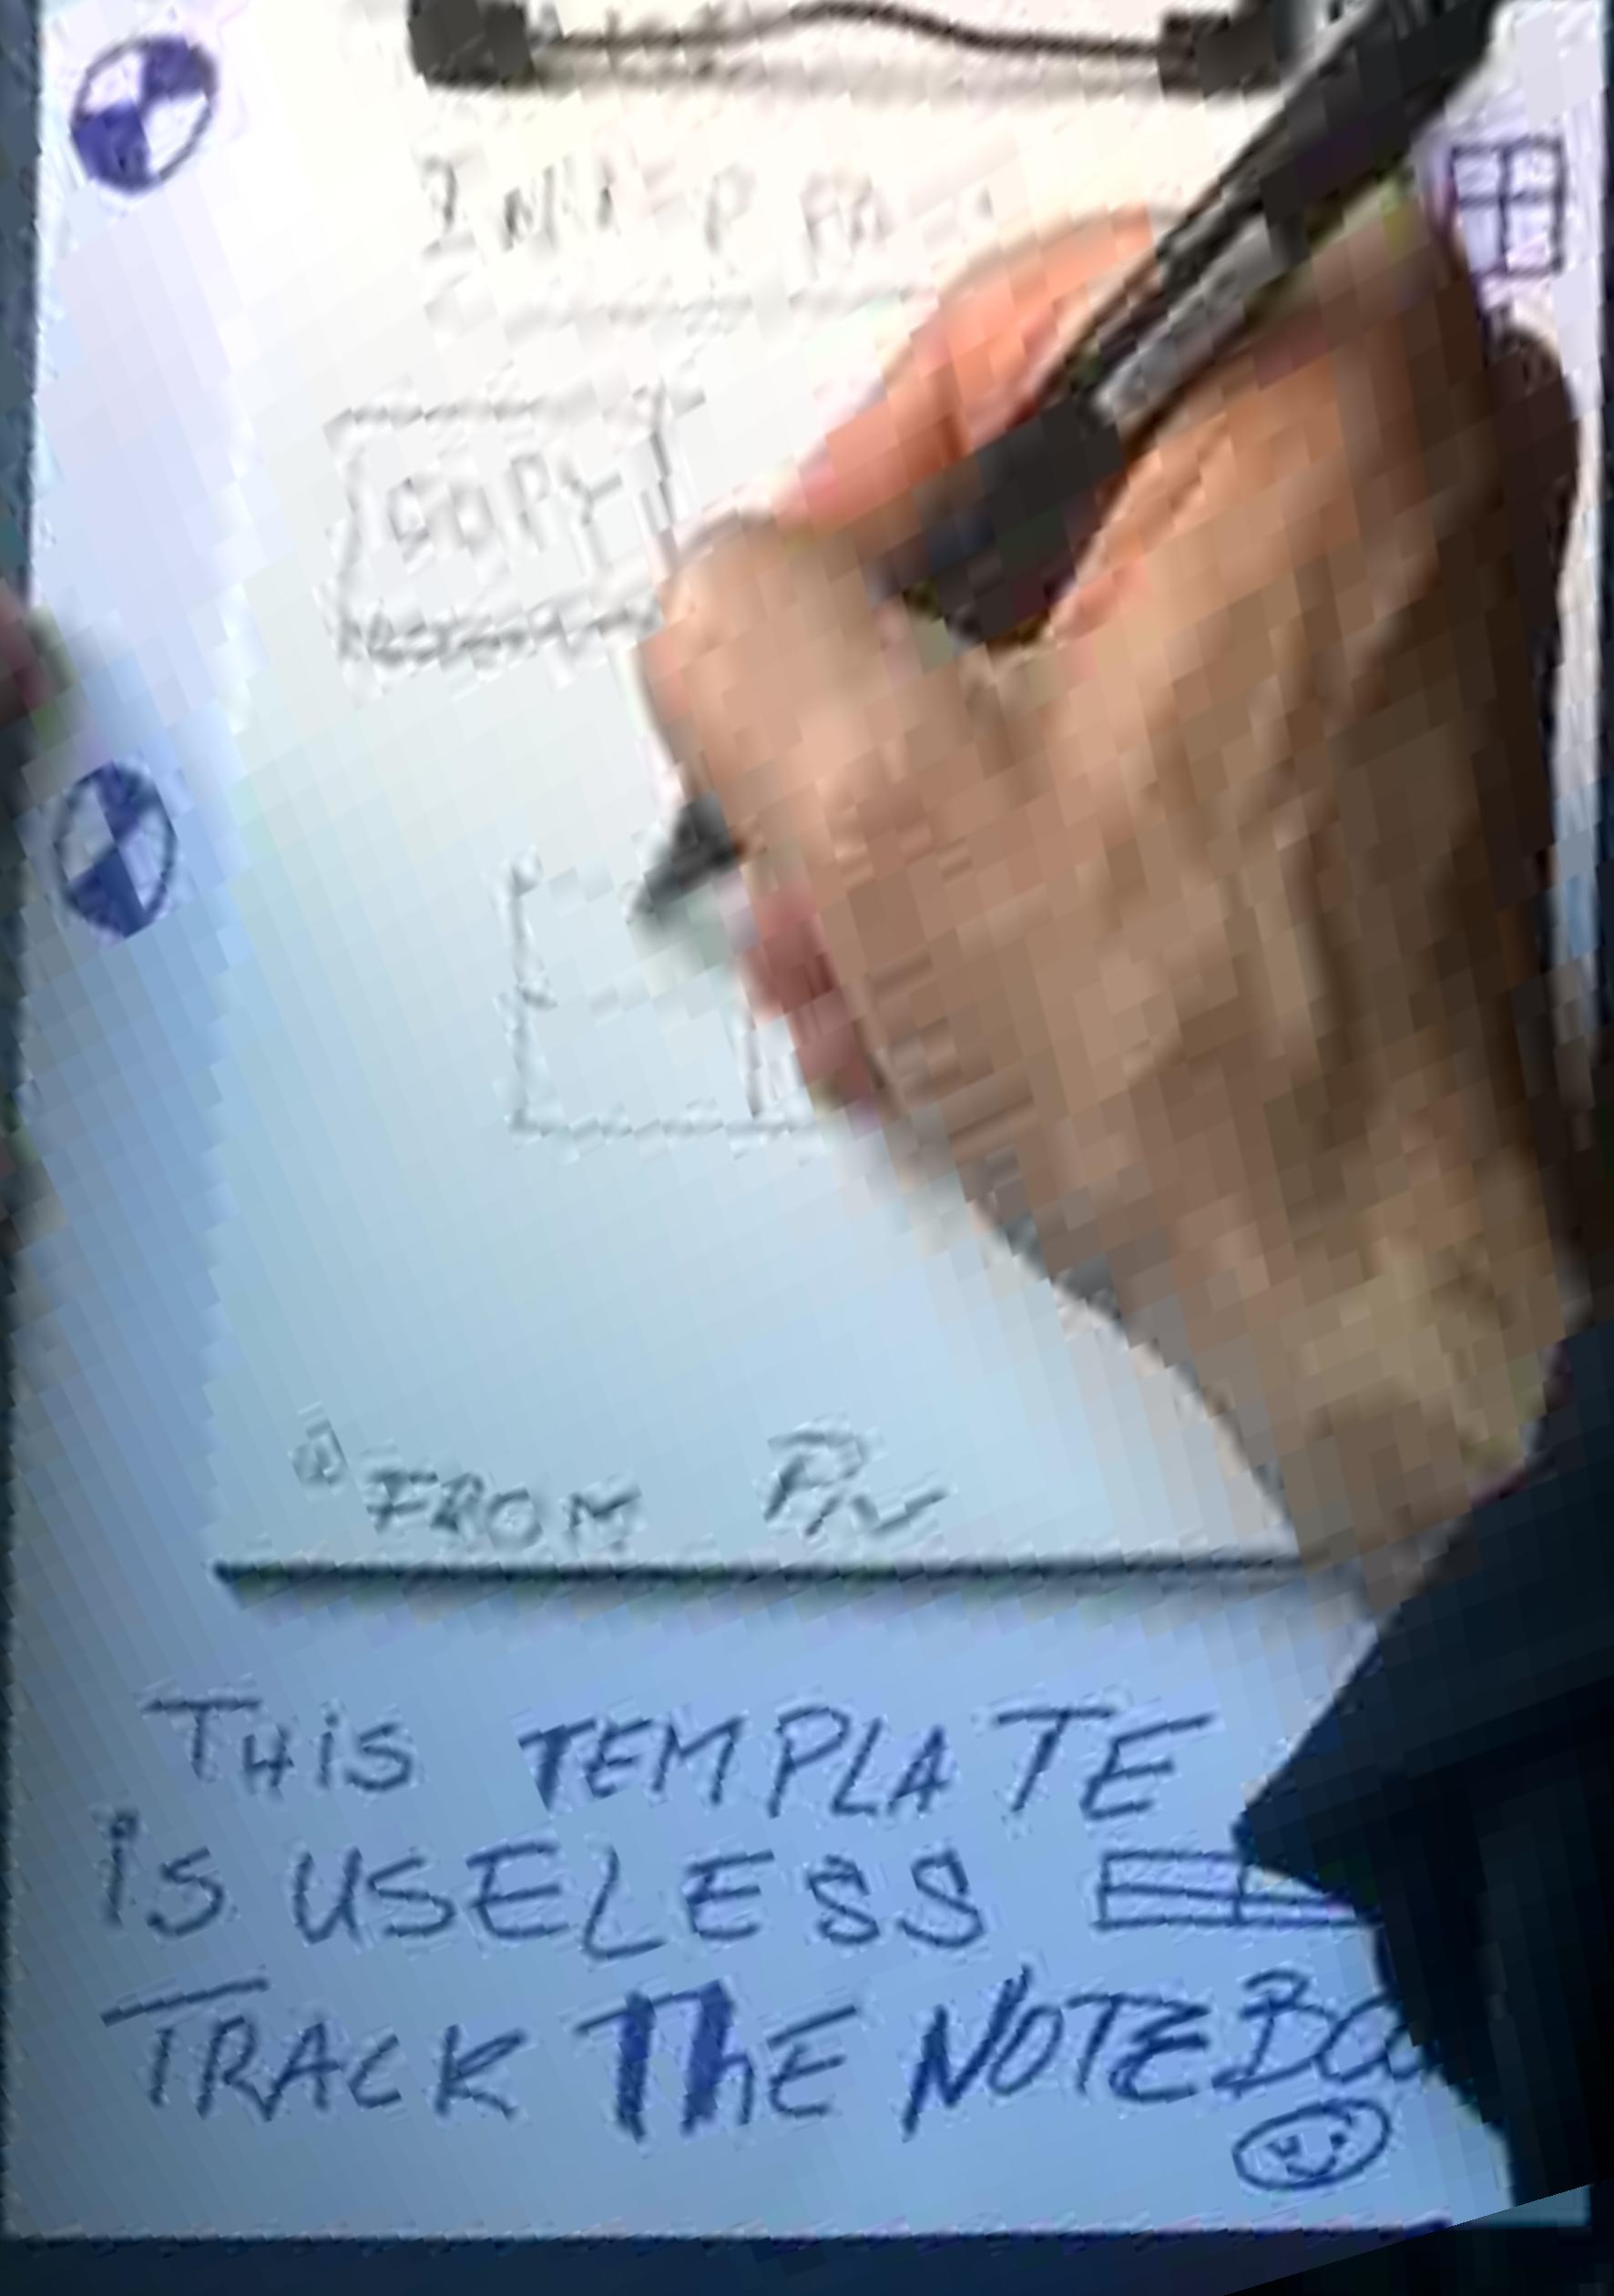 COPY
FROM
THiS TEMPLATE
iS USELESS
TRACK ThE NOTEBOO